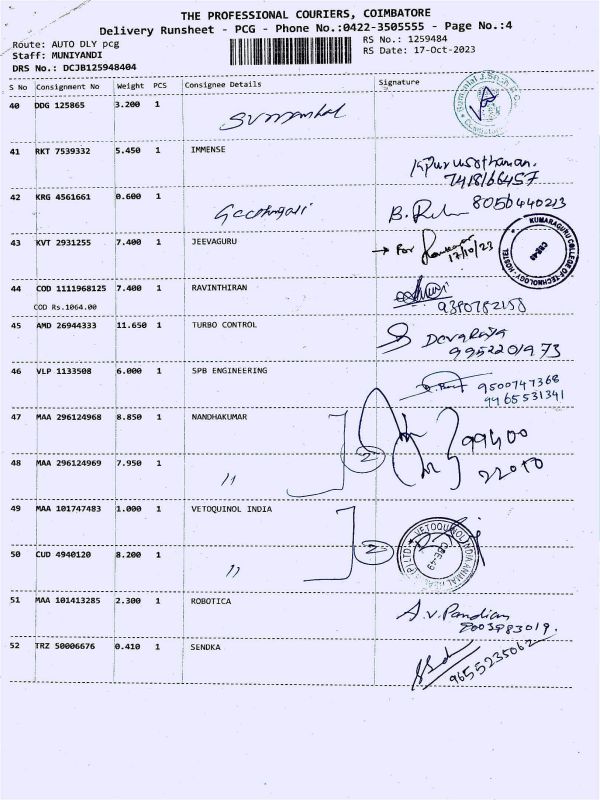 THE PROFESSIONAL COURIERS, COIMBATORE
Delivery Runsheet - PCG - Phone No.:0422-3505555 - Page No.:4
Route: AUTO DLY pcg
RS No.: 1259484
Staff: MUNIYANDI
RS Date: 17-Oct-2023
DRS No.: DCJB125948404
S No Consignment No Weight PCS Consignee Details Signature
40 DDG 125865 3.200 1
41 RKT 7539332 5.450 1 IMMENSE
7418166457
42 KRG 4561661 0.600 1
8056440213
43 KVT 2931255 7.400 1 JEEVAGURU
For
17/10/23
KUMARAGURU COLLEGE OF TECHNOLOGY-HOSTEL
CBE-49
44 COD 1111968125 7.400 1 RAVINTHIRAN
COD Rs.1064.00
9380782158
45 AMD 26944333 11.650 1 TURBO CONTROL
Devaraja
9952201973
46 VLP 1133508 6.000 1 SPB ENGINEERING
9500747368
9965531341
47 MAA 296124968 8.850 1 NANDHAKUMAR
2
99400
48 MAA 296124969 7.950 1 "
22010
49 MAA 101747483 1.000 1 VETOQUINOL INDIA
2
CBE-49
50 CUD 4940120 8.200 1 "
51 MAA 101413285 2.300 1 ROBOTICA
A.V. Pandian
8003983019.
52 TRZ 50006676 0.410 1 SENDKA
9655235062